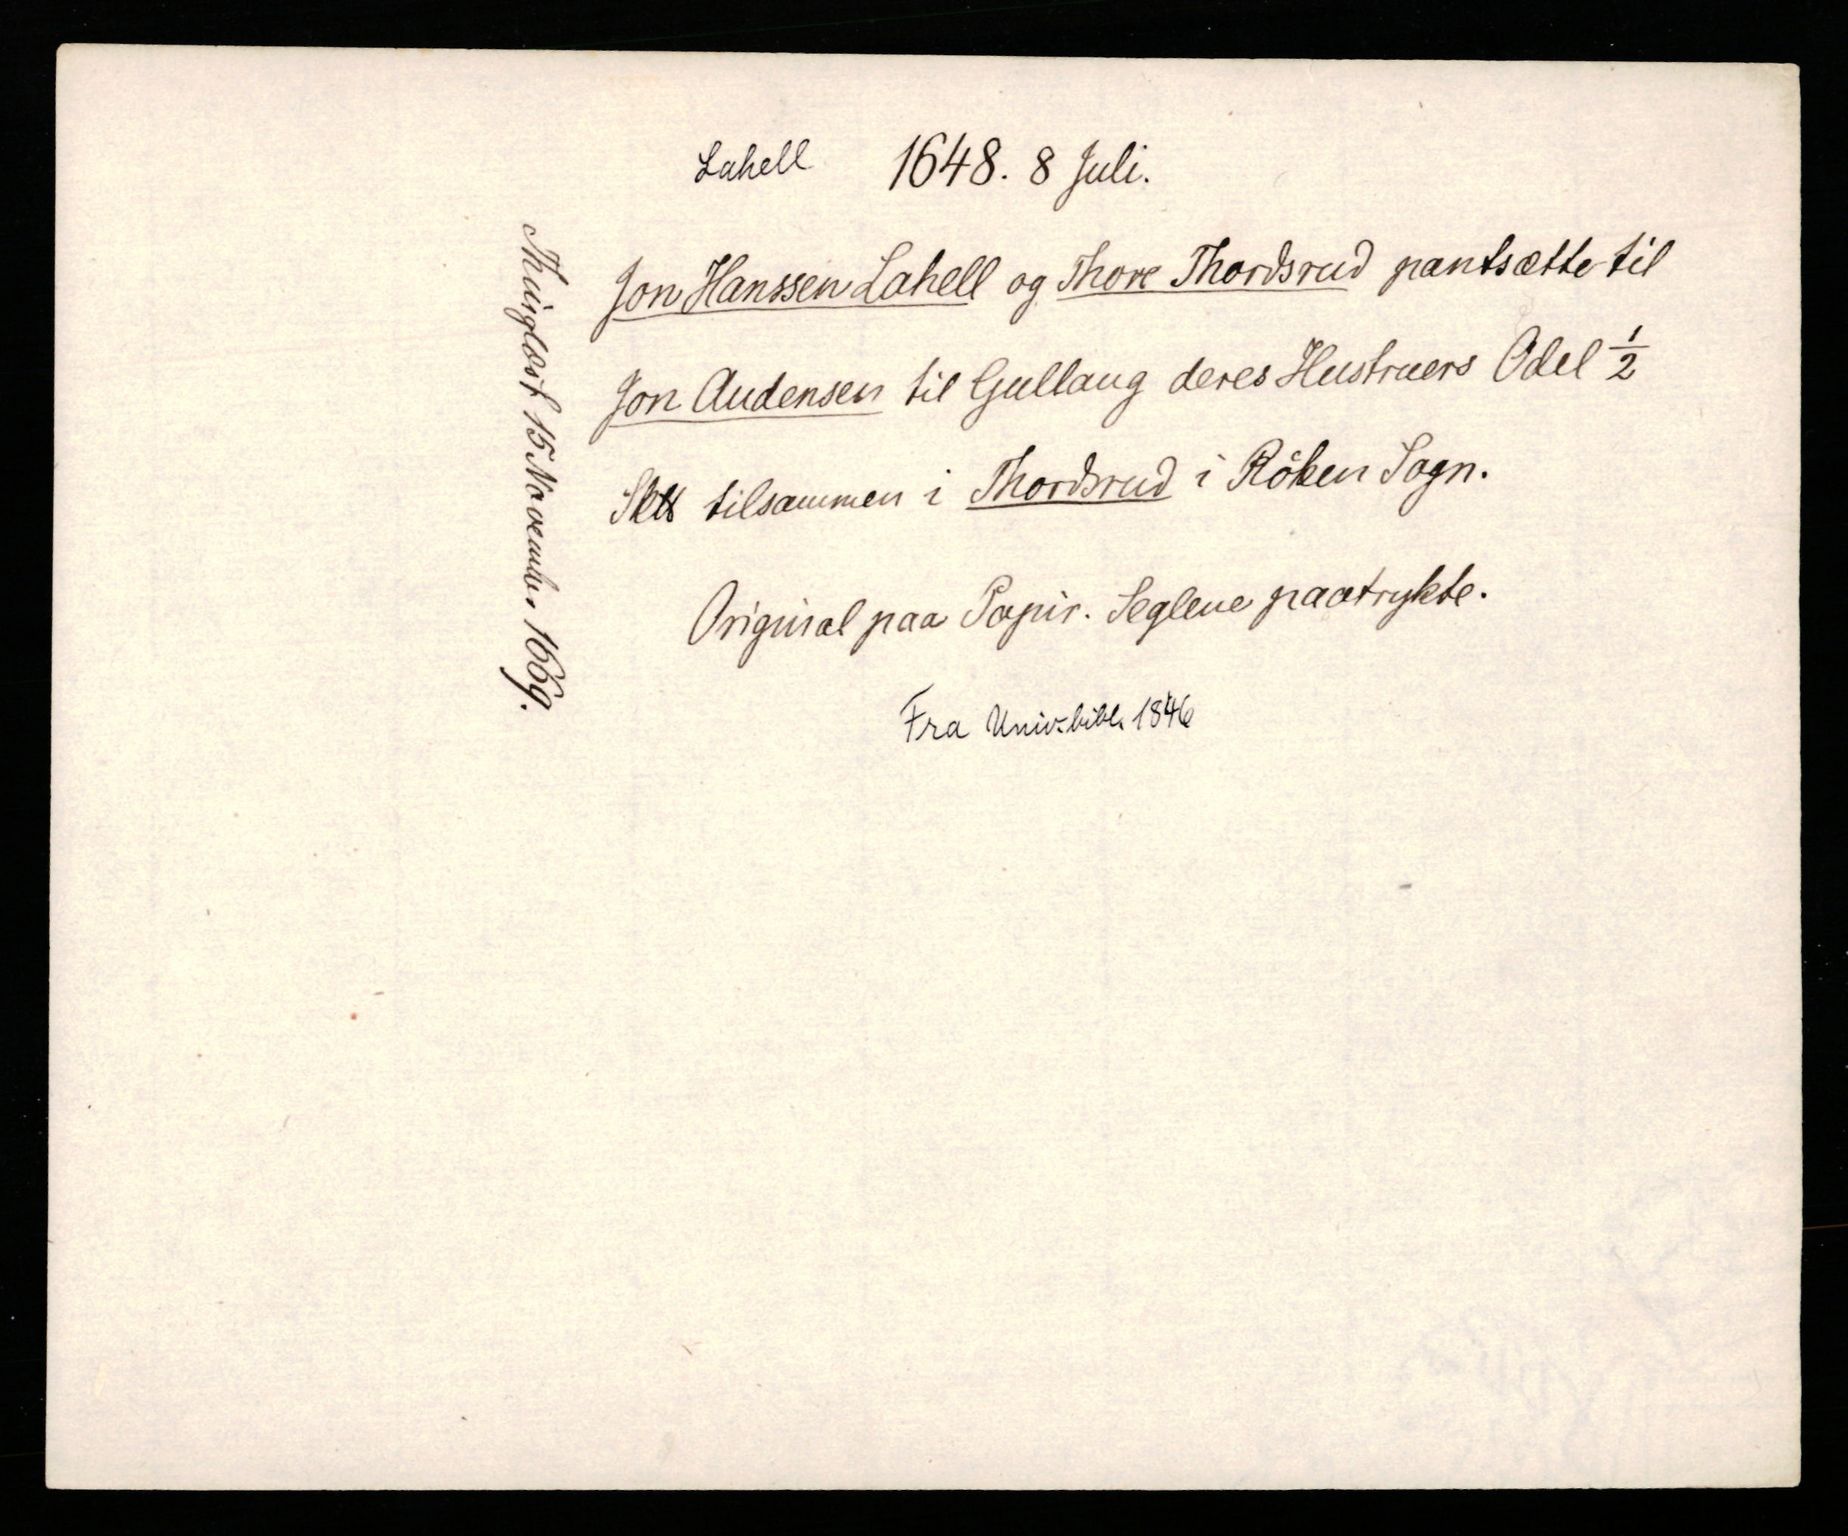 Lahell 1648. 8 Juli.
Jon Hanssen Lahell og Thore Thordsrud pantsætte til
Jon Audensen til Gullaug deres Hustruers Odel 1/2
tilsammen i Thordsrud i Röken Sogn.
Original paa Papir. Seglene paatrykte.
Fra Univ.bibl. 1846
Thinglæst 15 Novembr. 1669.